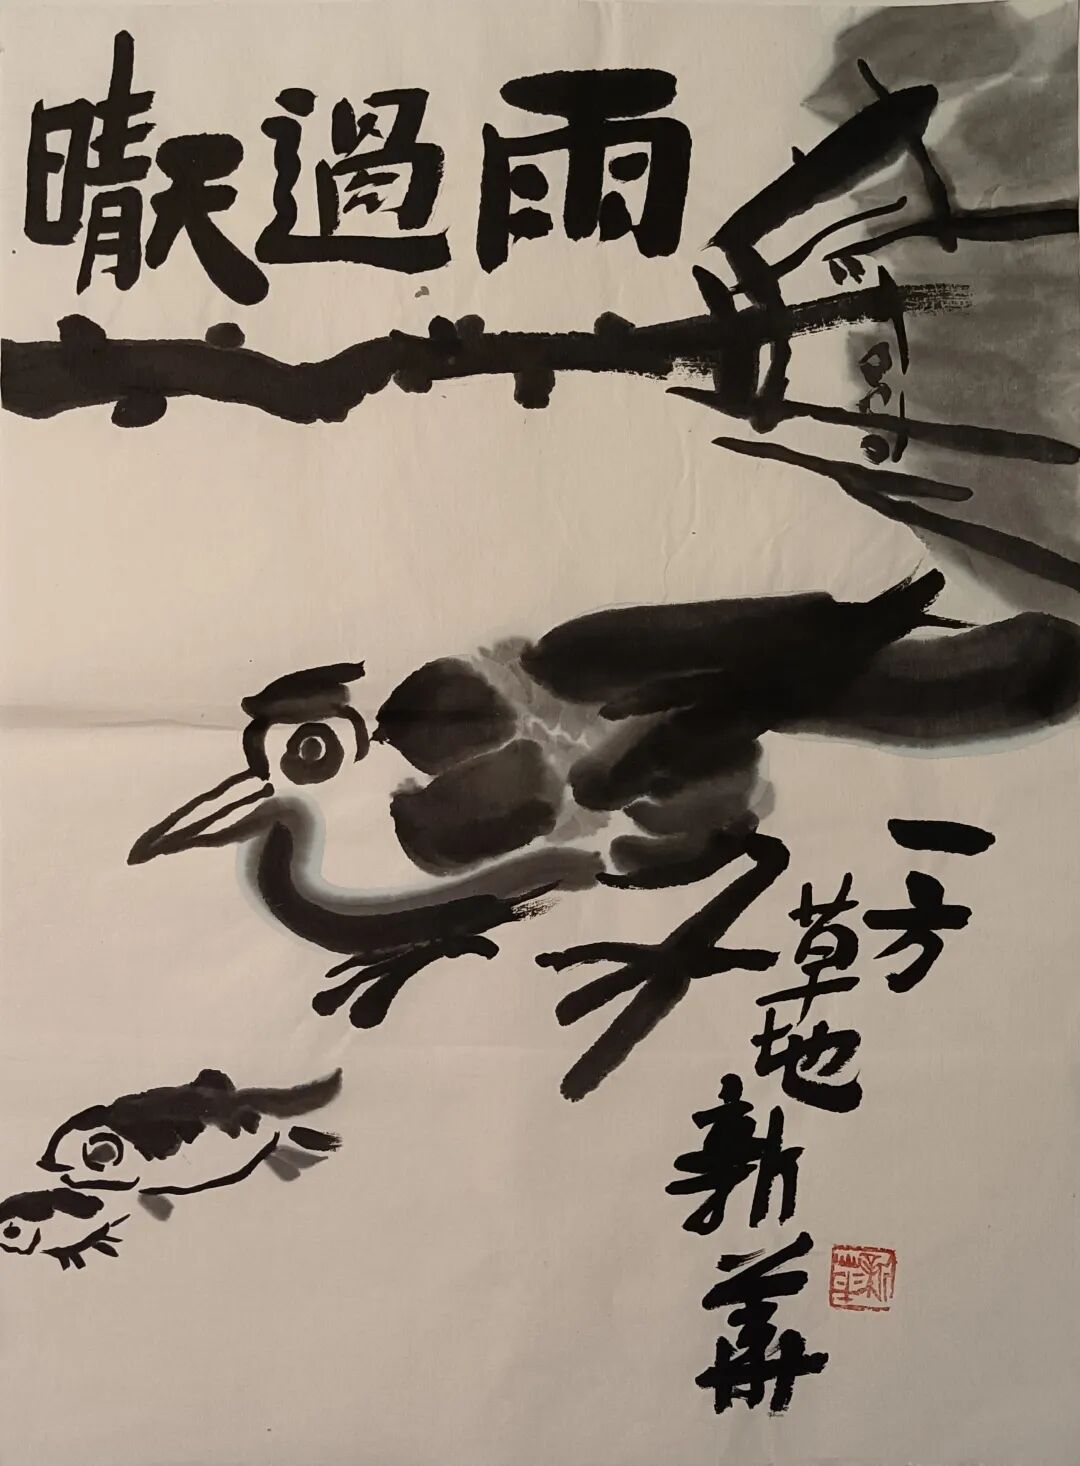 雨過天晴
一方
草地
新華